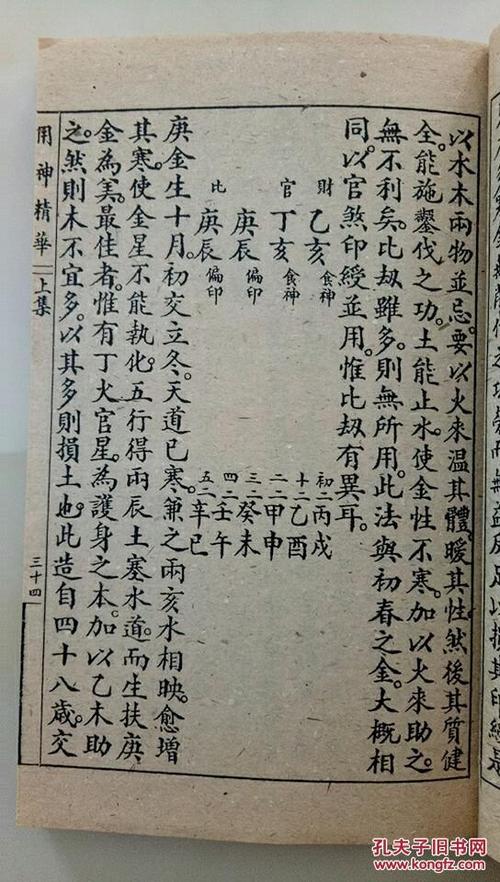 以水木兩物並忌。要以火來溫其體。暖其性。然後其質健
全。能施鑿伐之功。土能止水。使金性不寒。加以火來助之。
無不利矣。比刼雖多。則無所用。此法與初春之金。大概相
同。以官煞印綬並用。惟比刼有異耳。
財 乙亥 食神 初二丙戌
官 丁亥 食神 十二乙酉
庚辰 偏印 二二甲申
比 庚辰 偏印 三二癸未
四二壬午
五二辛巳
庚金生十月。初交立冬。天道已寒。兼之兩亥水相映。愈增
其寒。使金星不能執化。五行得兩辰土塞水道。而生扶庚
金為美。最佳者。惟有丁火官星。為護身之本。加以乙木助
之。然則木不宜多。以其多則損土也。此造自四十八歲。交
用神精華 上集 三十四
孔夫子旧书网
www.kongfz.com